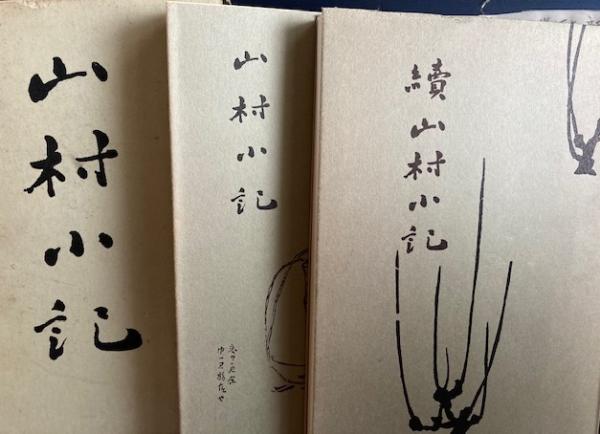 山村小記
山村小記
續山村小記